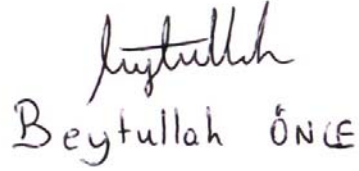 Beytullah
Beytullah ÖNCE